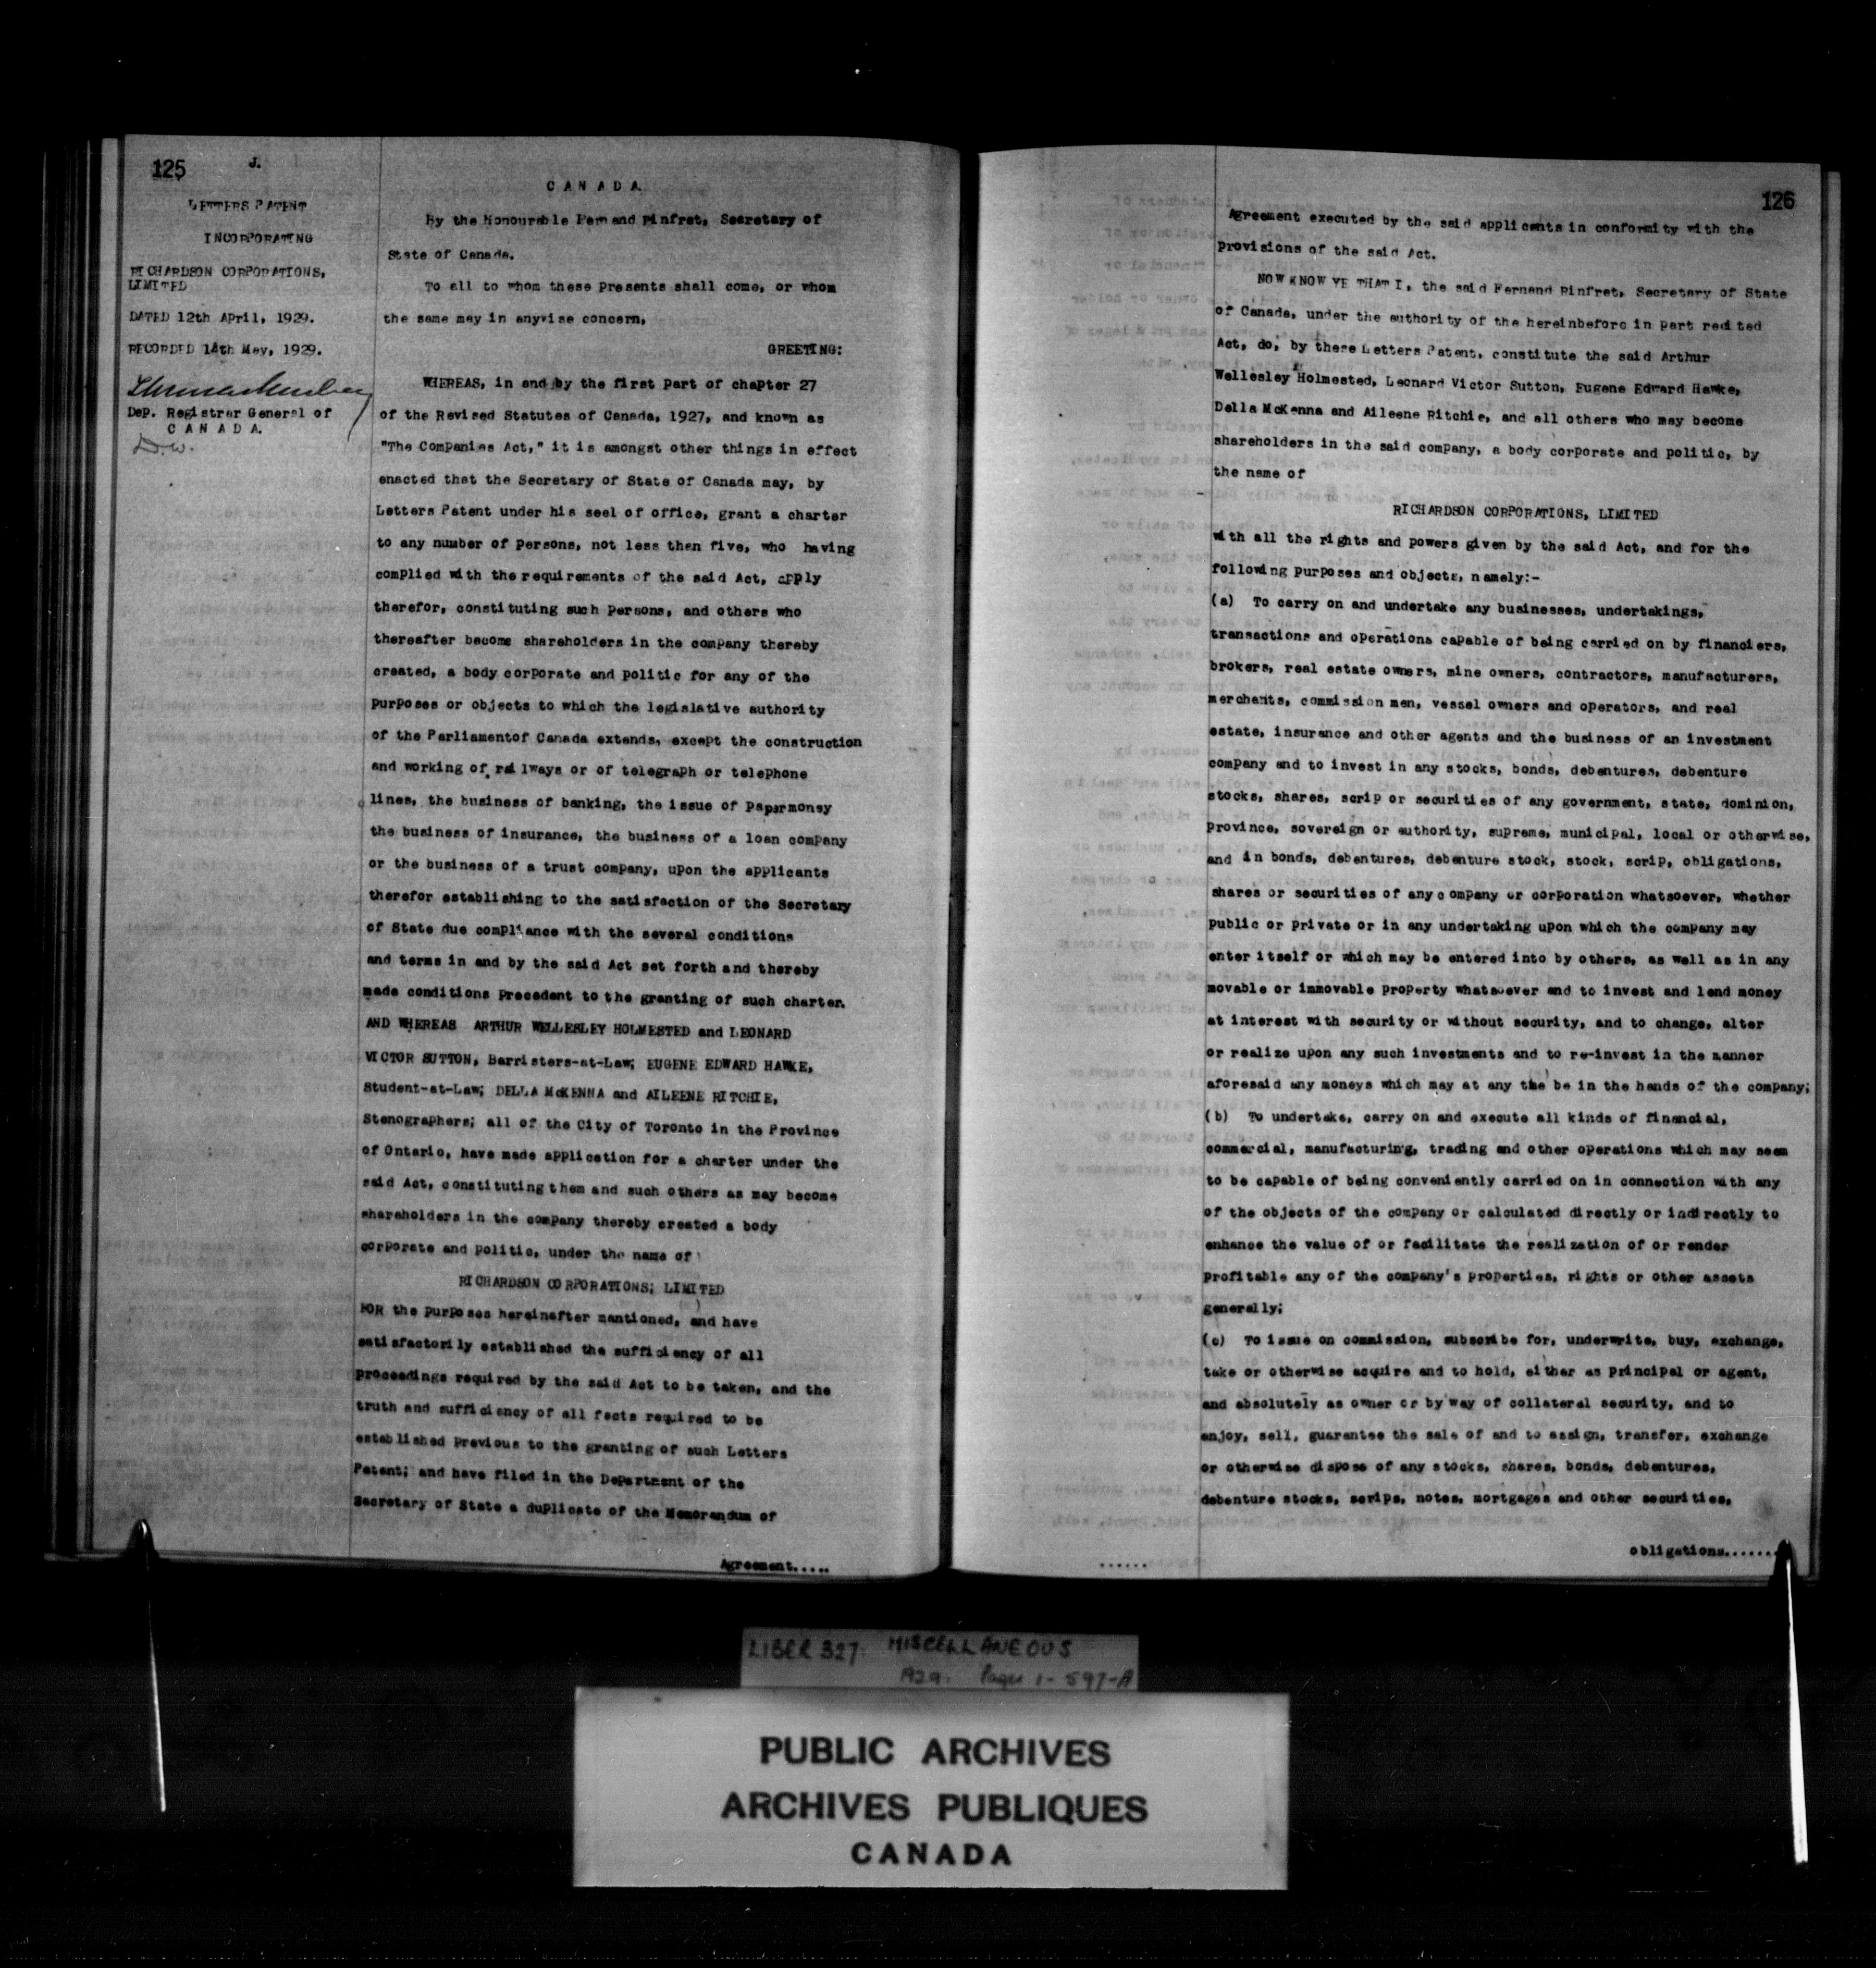 125
J.
LETTERS PATENT
INCORPORATING
RICHARDSON CORPORATIONS,
LIMITED
DATED 12th April, 1929.
RECORDED 14th May, 1929.
Dep. Registrar General of
C A N A D A.
D.W.
C A N A D A
By the Honourable Fernand Rinfret, Secretary of
State of Canada.
To all to whom these Presents shall come, or whom
the same may in anywise concern,
GREETING:
WHEREAS, in and by the first Part of chapter 27
of the Revised Statutes of Canada, 1927, and known as
"The Companies Act," it is amongst other things in effect
enacted that the Secretary of State of Canada may, by
Letters Patent under his seel of office, grant a charter
to any number of Persons, not less than five, who having
complied with the requirements of the said Act, apply
therefor, constituting such Persons, and others who
thereafter become shareholders in the company thereby
created, a body corporate and politic for any of the
purposes or objects to which the legislative authority
of the Parliamentof Canada extends, except the construction
and working of railways or of telegraph or telephone
lines, the business of banking, the issue of paper money
the business of insurance, the business of a loan company
or the business of a trust company, upon the applicants
therefor establishing to the satisfaction of the Secretary
of State due compliance with the several conditions
and terms in and by the said Act set forth and thereby
made conditions precedent to the granting of such charter.
AND WHEREAS ARTHUR WELLESLEY HOLMESTED and LEONARD
VICTOR SUTTON, Barristers-at-Law; EUGENE EDWARD HAWKE,
Student-at-Law; DELLA McKENNA and AILEENE RITCHIE,
Stenographers; all of the City of Toronto in the Province
of Ontario, have made application for a charter under the
said Act, constituting them and such others as may become
shareholders in the company thereby created a body
corporate and politic, under the name of
RICHARDSON CORPORATIONS; LIMITED
FOR the purposes hereinafter mantioned, and have
satisfactorily established the sufficiency of all
proceedings required by the said Act to be taken, and the
truth and sufficiency of all facts required to be
established previous to the granting of such Letters
Patent; and have filed in the Department of the
Secretary of State a duplicate of the Memorandum of
Agreement.....
126
Agreement executed by the said applicants in conformity with the
provisions of the said Act.
NOW KNOW YE THAT I, the said Fernand Rinfret, Secretary of State
of Canada, under the authority of the hereinbefore in part recited
Act, do, by these Letters Patent, constitute the said Arthur
Wellesley Holmested, Leonard Victor Sutton, Eugene Edward Hawke,
Della McKenna and Aileene Ritchie, and all others who may become
shareholders in the said company, a body corporate and politic, by
the name of
RICHARDSON CORPORATIONS, LIMITED
with all the rights and powers given by the said Act, and for the
following purposes and objects, namely:-
(a) To carry on and undertake any businesses, undertakings,
transactions and operations capable of being carried on by financiers,
brokers, real estate owners, mine owners, contractors, manufacturers,
merchants, commission men, vessel owners and operators, and real
estate, insurance and other agents and the business of an investment
company and to invest in any stocks, bonds, debentures, debenture
stocks, shares, scrip or securities of any government, state, dominion,
province, sovereign or authority, supreme, municipal, local or otherwise,
and in bonds, debentures, debenture stock, stock, scrip, obligations,
shares or securities of any company or corporation whatsoever, whether
public or private or in any undertaking upon which the company may
enter itself or which may be entered into by others, as well as in any
movable or immovable property whatsoever and to invest and lend money
at interest with security or without security, and to change, alter
or realize upon any such investments and to re-invest in the manner
aforesaid any moneys which may at any time be in the hands of the company;
(b) To undertake, carry on and execute all kinds of financial,
commercial, manufacturing, trading and other operations which may seem
to be capable of being conveniently carried on in connection with any
of the objects of the company or calculated directly or indirectly to
enhance the value of or facilitate the realization of or render
profitable any of the company's properties, rights or other assets
generally;
(c) To issue on commission, subscribe for, underwrite, buy, exchange,
take or otherwise acquire and to hold, either as principal or agent,
and absolutely as owner or by way of collateral security, and to
enjoy, sell, guarantee the sale of and to assign, transfer, exchange
or otherwise dispose of any stocks, shares, bonds, debentures,
debenture stocks, scrips, notes, mortgages and other securities,
obligations.......
LIBER 327. MISCELLANEOUS
1929. Pages 1-597-A
PUBLIC ARCHIVES
ARCHIVES PUBLIQUES
CANADA